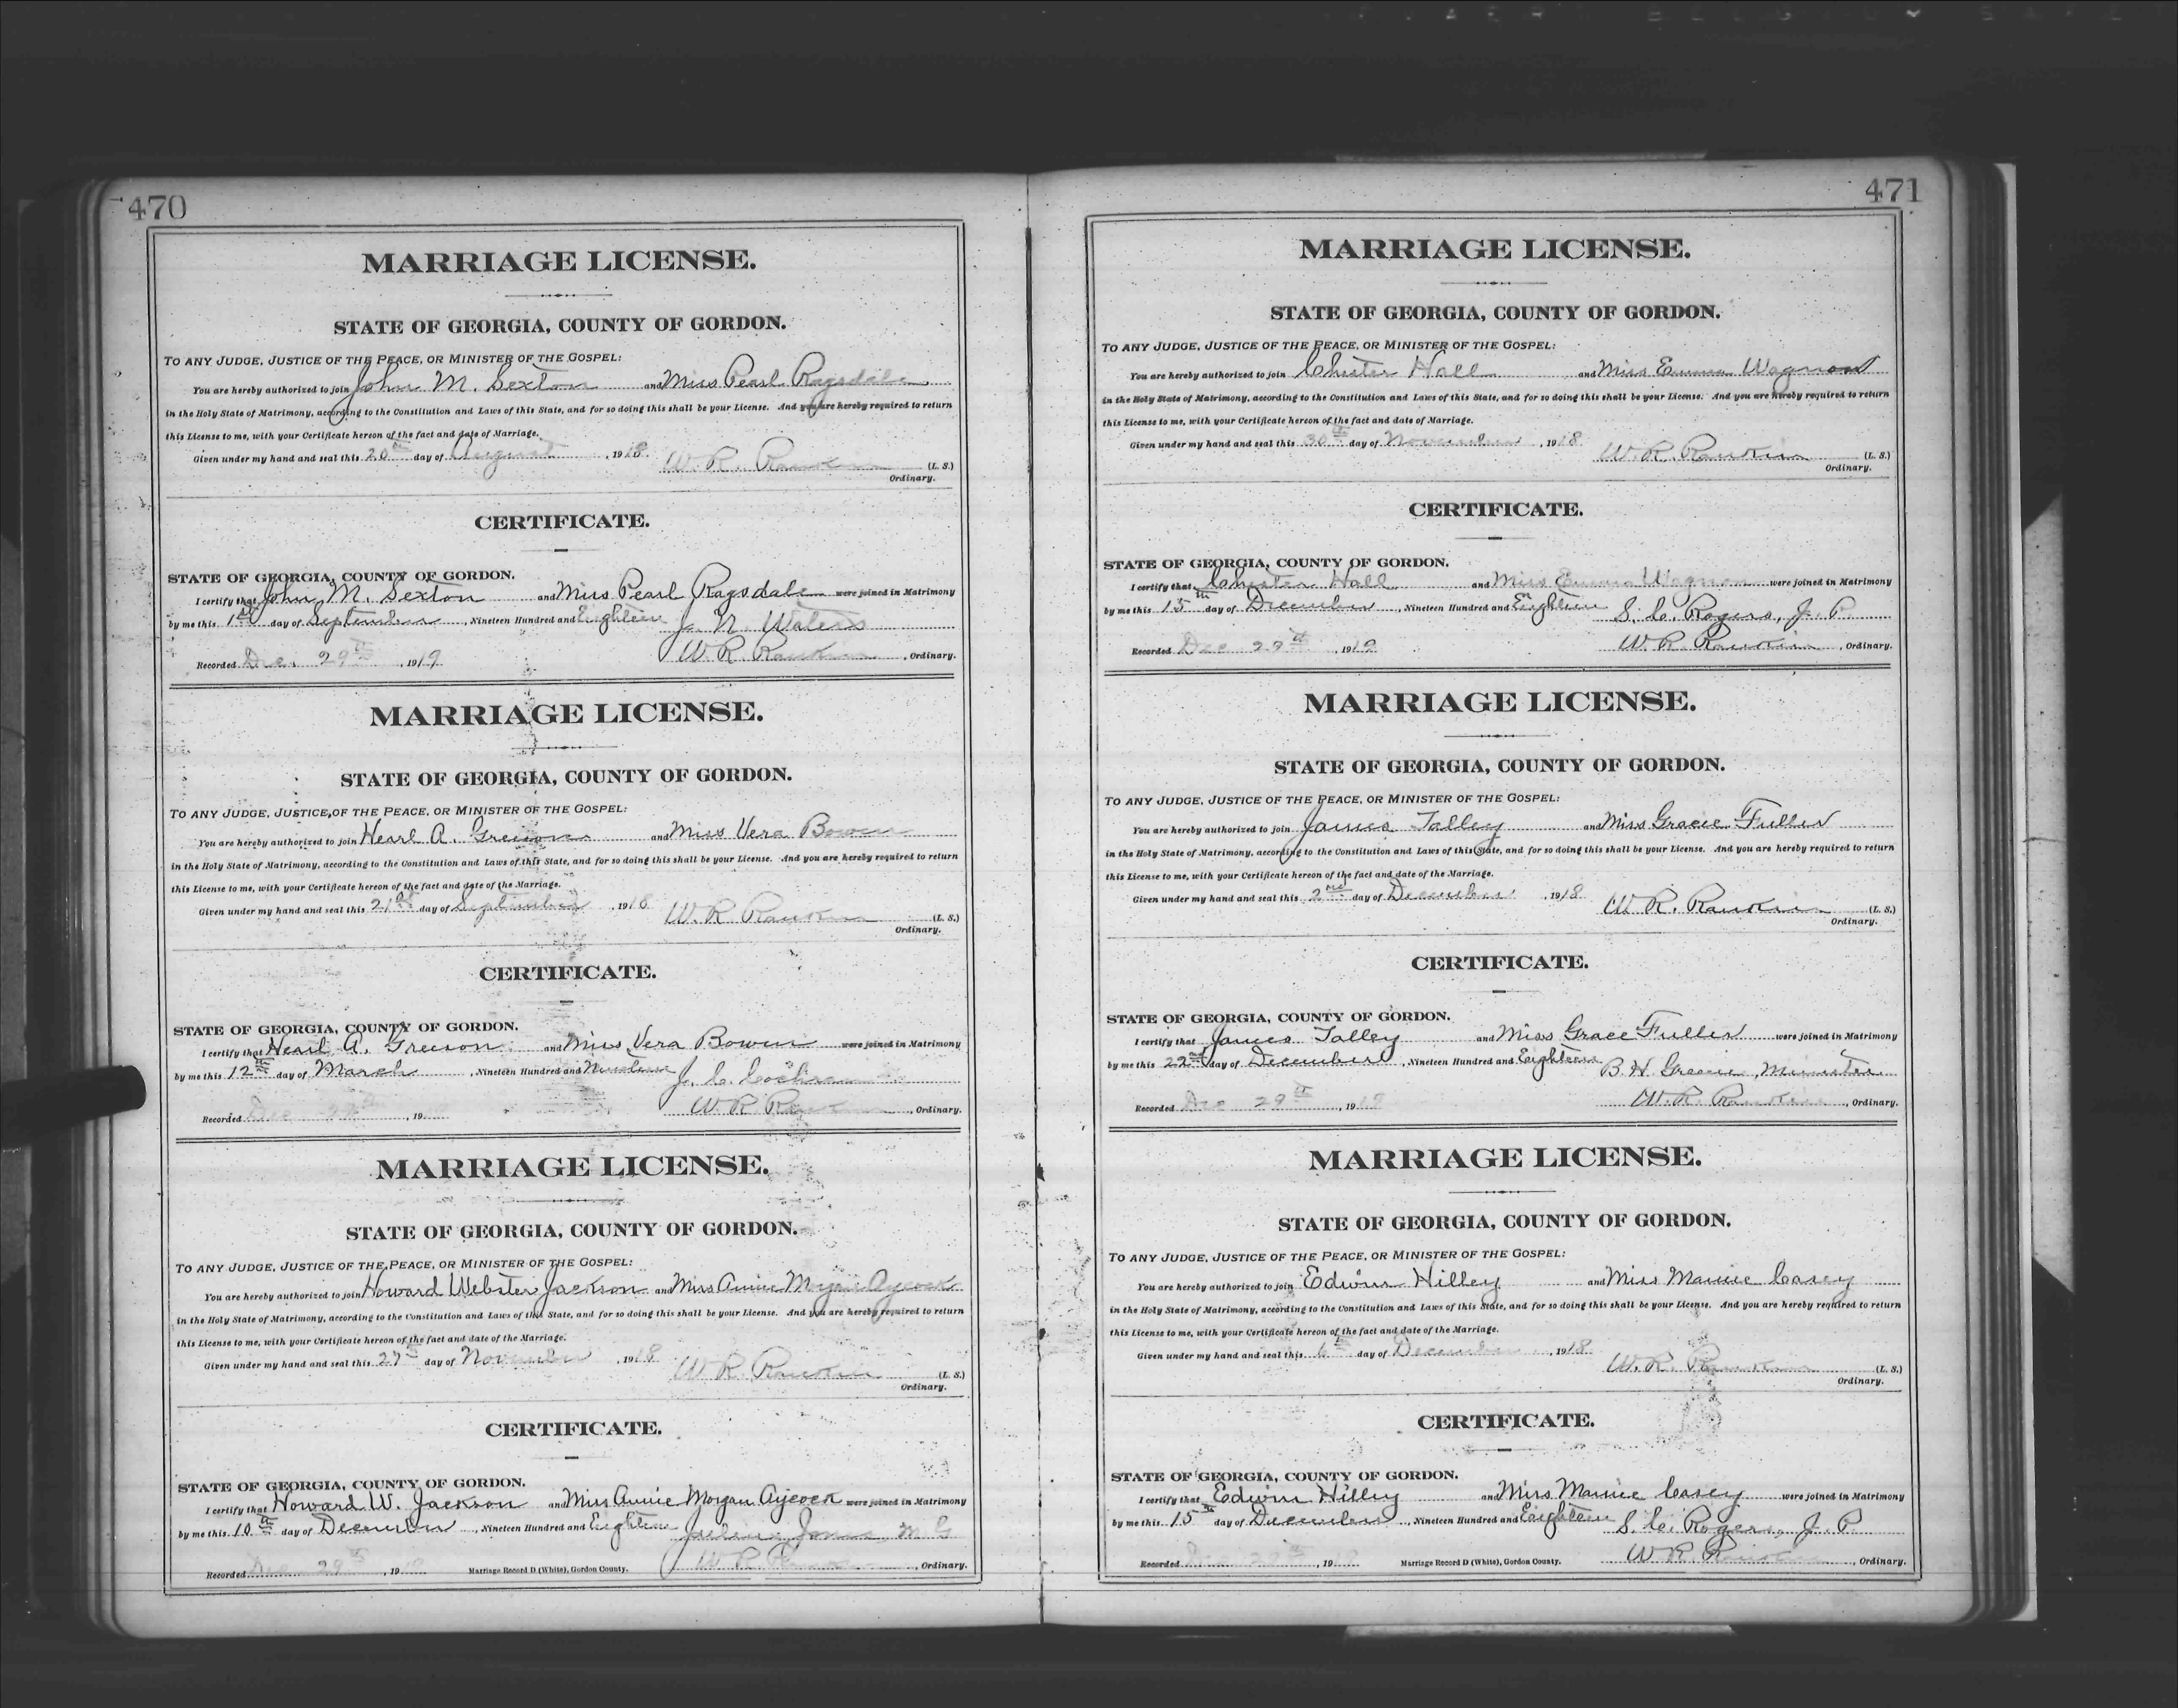 470
MARRIAGE LICENSE.
STATE OF GEORGIA, COUNTY OF GORDON.
TO ANY JUDGE, JUSTICE OF THE PEACE, OR MINISTER OF THE GOSPEL:
You are hereby authorized to join John M. Sexton and Miss Pearl Ragsdale
in the Holy State of Matrimony, according to the Constitution and Laws of this State, and for so doing this shall be your License. And you are hereby required to return
this License to me, with your Certificate hereon of the fact and date of Marriage.
Given under my hand and seal this 20th day of August, 1918. W. R. Rankin (L. S.)
Ordinary.
CERTIFICATE.
STATE OF GEORGIA, COUNTY OF GORDON.
I certify that John M. Sexton and Miss Pearl Ragsdale were joined in Matrimony
by me this 1st day of September, Nineteen Hundred and Eighteen J. N. Waters
Recorded Dec. 29th, 1919 W. R. Rankin, Ordinary.
MARRIAGE LICENSE.
STATE OF GEORGIA, COUNTY OF GORDON.
TO ANY JUDGE, JUSTICE OF THE PEACE, OR MINISTER OF THE GOSPEL:
You are hereby authorized to join Hearl A. Greeson and Miss Vera Bowen
in the Holy State of Matrimony, according to the Constitution and Laws of this State, and for so doing this shall be your License. And you are hereby required to return
this License to me, with your Certificate hereon of the fact and date of the Marriage.
Given under my hand and seal this 21st day of September, 1918 W. R. Rankin (L. S.)
Ordinary.
CERTIFICATE.
STATE OF GEORGIA, COUNTY OF GORDON.
I certify that Hearl A. Greeson and Miss Vera Bowen were joined in Matrimony
by me this 12th day of March, Nineteen Hundred and Nineteen J. C. Cochran
Recorded Dec, 19 W. R. Rankin, Ordinary.
MARRIAGE LICENSE.
STATE OF GEORGIA, COUNTY OF GORDON.
TO ANY JUDGE, JUSTICE OF THE PEACE, OR MINISTER OF THE GOSPEL:
You are hereby authorized to join Howard Webster Jackson and Miss Annie Morgan Aycock
in the Holy State of Matrimony, according to the Constitution and Laws of this State, and for so doing this shall be your License. And you are hereby required to return
this License to me, with your Certificate hereon of the fact and date of the Marriage.
Given under my hand and seal this 27th day of November, 1918 W. R. Rankin (L. S.)
Ordinary.
CERTIFICATE.
STATE OF GEORGIA, COUNTY OF GORDON.
I certify that Howard W. Jackson and Miss Annie Morgan Aycock were joined in Matrimony
by me this 10th day of December, Nineteen Hundred and Eighteen Jones M. G.
Recorded Dec 29th, 19 Marriage Record D (White), Gordon County. W. R. Rankin, Ordinary.
471
MARRIAGE LICENSE.
STATE OF GEORGIA, COUNTY OF GORDON.
TO ANY JUDGE, JUSTICE OF THE PEACE, OR MINISTER OF THE GOSPEL:
You are hereby authorized to join Chester Hall and Miss Emma Wagnon
in the Holy State of Matrimony, according to the Constitution and Laws of this State, and for so doing this shall be your License. And you are hereby required to return
this License to me, with your Certificate hereon of the fact and date of Marriage.
Given under my hand and seal this 30th day of November, 1918 W. R. Rankin (L. S.)
Ordinary.
CERTIFICATE.
STATE OF GEORGIA, COUNTY OF GORDON.
I certify that Chester Hall and Miss Emma Wagnon were joined in Matrimony
by me this 15th day of December, Nineteen Hundred and Eighteen S. C. Rogers, J. P.
Recorded Dec 29th, 1919 W. R. Rankin, Ordinary.
MARRIAGE LICENSE.
STATE OF GEORGIA, COUNTY OF GORDON.
TO ANY JUDGE, JUSTICE OF THE PEACE, OR MINISTER OF THE GOSPEL:
You are hereby authorized to join James Talley and Miss Gracie Fuller
in the Holy State of Matrimony, according to the Constitution and Laws of this State, and for so doing this shall be your License. And you are hereby required to return
this License to me, with your Certificate hereon of the fact and date of the Marriage.
Given under my hand and seal this 2nd day of December, 1918 W. R. Rankin (L. S.)
Ordinary.
CERTIFICATE.
STATE OF GEORGIA, COUNTY OF GORDON.
I certify that James Talley and Miss Grace Fuller were joined in Matrimony
by me this 22nd day of December, Nineteen Hundred and Eighteen B. H. Greene, Minister
Recorded Dec 29th, 1919 W. R. Rankin, Ordinary.
MARRIAGE LICENSE.
STATE OF GEORGIA, COUNTY OF GORDON.
TO ANY JUDGE, JUSTICE OF THE PEACE, OR MINISTER OF THE GOSPEL:
You are hereby authorized to join Edwin Hilley and Miss Mamie Casey
in the Holy State of Matrimony, according to the Constitution and Laws of this State, and for so doing this shall be your License. And you are hereby required to return
this License to me, with your Certificate hereon of the fact and date of the Marriage.
Given under my hand and seal this 6th day of December, 1918 W. R. Rankin (L. S.)
Ordinary.
CERTIFICATE.
STATE OF GEORGIA, COUNTY OF GORDON.
I certify that Edwin Hilley and Miss Mamie Casey were joined in Matrimony
by me this 15th day of December, Nineteen Hundred and Eighteen S. C. Rogers, J. P.
Recorded 29th, 19 Marriage Record D (White), Gordon County. W. R. Rankin, Ordinary.